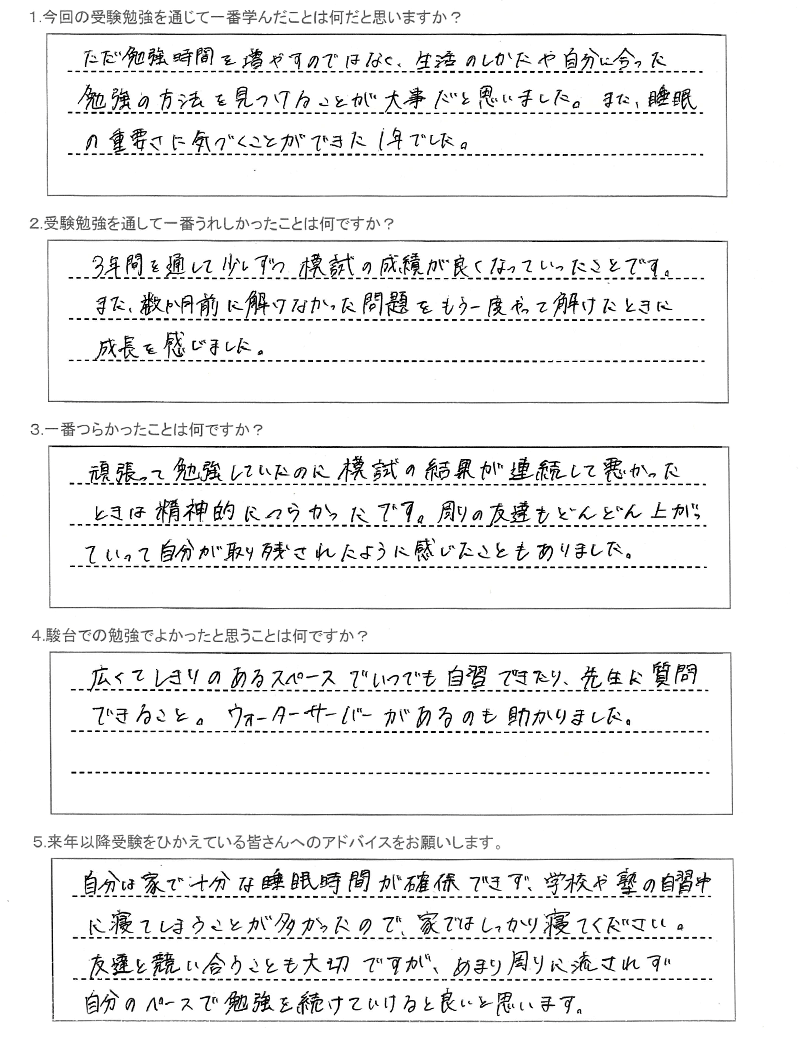 1.今回の受験勉強を通じて一番学んだことは何だと思いますか？
ただ勉強時間を増やすのではなく、生活のしかたや自分に合った
勉強の方法を見つけることが大事だと思いました。また、睡眠
の重要さに気づくことができた1年でした。
2.受験勉強を通して一番うれしかったことは何ですか？
3年間を通して少しずつ模試の成績が良くなっていったことです。
また、数か月前に解けなかった問題をもう一度やって解けたときに
成長を感じました。
3.一番つらかったことは何ですか？
頑張って勉強していたのに模試の結果が連続して悪かった
ときは精神的につらかったです。周りの友達もどんどん上がっ
ていって自分が取り残されたように感じたこともありました。
4.駿台での勉強でよかったと思うことは何ですか？
広くてしきりのあるスペースでいつでも自習できたり、先生に質問
できること。ウォーターサーバーがあるのも助かりました。
5.来年以降受験をひかえている皆さんへのアドバイスをお願いします。
自分は家で十分な睡眠時間が確保できず、学校や塾の自習中
に寝てしまうことが多かったので、家ではしっかり寝てください。
友達と競い合うことも大切ですが、あまり周りに流されず
自分のペースで勉強を続けていけると良いと思います。